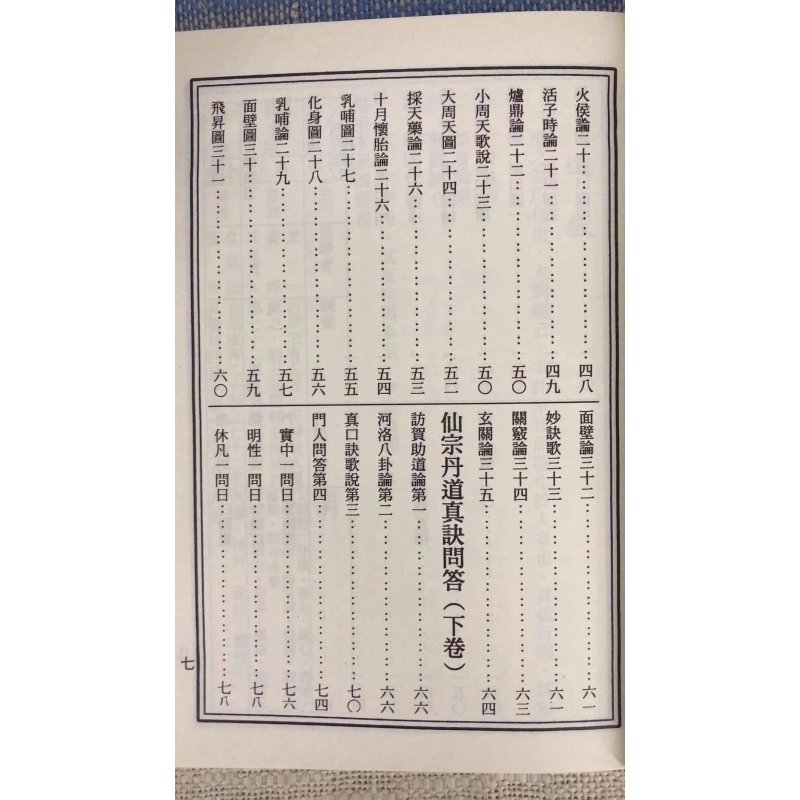 火侯論二十……………………四八
活子時論二十一……………………四九
爐鼎論二十二……………………五〇
小周天歌說二十三……………………五〇
大周天圖二十四……………………五二
採天藥論二十六……………………五三
十月懷胎論二十六……………………五四
乳哺圖二十七……………………五五
化身圖二十八……………………五六
乳哺論二十九……………………五七
面壁圖三十……………………五九
飛昇圖三十一……………………六〇
面壁論三十二……………………六一
妙訣歌三十三……………………六一
關竅論三十四……………………六三
玄關論三十五……………………六四
仙宗丹道真訣問答（下卷）
訪賀助道論第一……………………六六
河洛八卦論第二……………………六六
真口訣歌說第三……………………七〇
門人問答第四……………………七四
實中一問曰……………………七六
明性一問曰……………………七八
休凡一問曰……………………七八
七